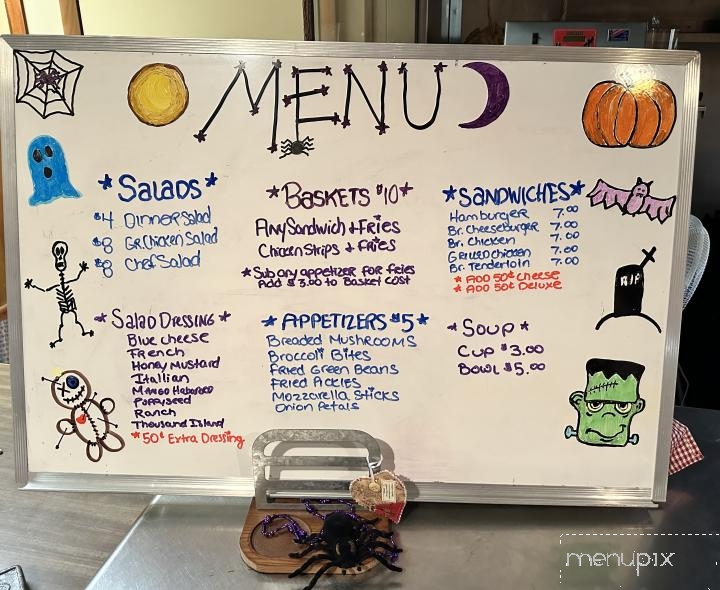 MENU
*Salads*
$4 Dinner Salad
$8 Gr. Chicken Salad
$8 Chef Salad
*Baskets $10*
Any Sandwich & Fries
Chicken Strips & Fries
*Sub any appetizer for fries
Add $3.00 to Basket cost
*SANDWICHES*
Hamburger 7.00
Br. Cheeseburger 7.00
Br. Chicken 7.00
Grilled Chicken 7.00
Br. Tenderloin 7.00
* ADD 50¢ Cheese
* ADD 50¢ Deluxe
RIP
*Salad Dressing*
Blue cheese
French
Honey Mustard
Itallian
Mango Habanero
Poppyseed
Ranch
Thousand Island
*50¢ Extra Dressing
*APPETIZERS $5*
Breaded Mushrooms
Broccoli Bites
Fried Green Beans
Fried Pickles
Mozzarella Sticks
Onion Petals
*Soup*
Cup $3.00
Bowl $5.00
menupix